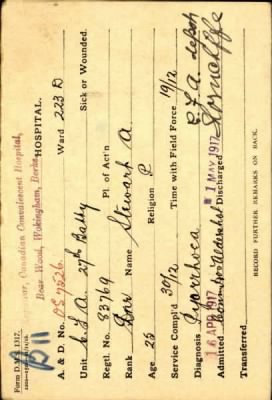 Form D.
1317.
Canadian Convalescent Hospital,
Bear Wood, Wokingham, Berks.
HOSPITAL.
A. & D. No. Ward 223 D
Unit C.F.A. 27th Batty Sick or Wounded.
Regtl. No. 83769 Pl. of Act'n
Rank Name Stewart A
Age 25 Religion P
Service Compl'd 30/12 Time with Field Force 19/12
Diagnosis Pyorrhoea C.F.A. depot
16 APR 1917 1 MAY 1917
Admitted Discharged
Transferred
RECORD FURTHER REMARKS ON BACK.